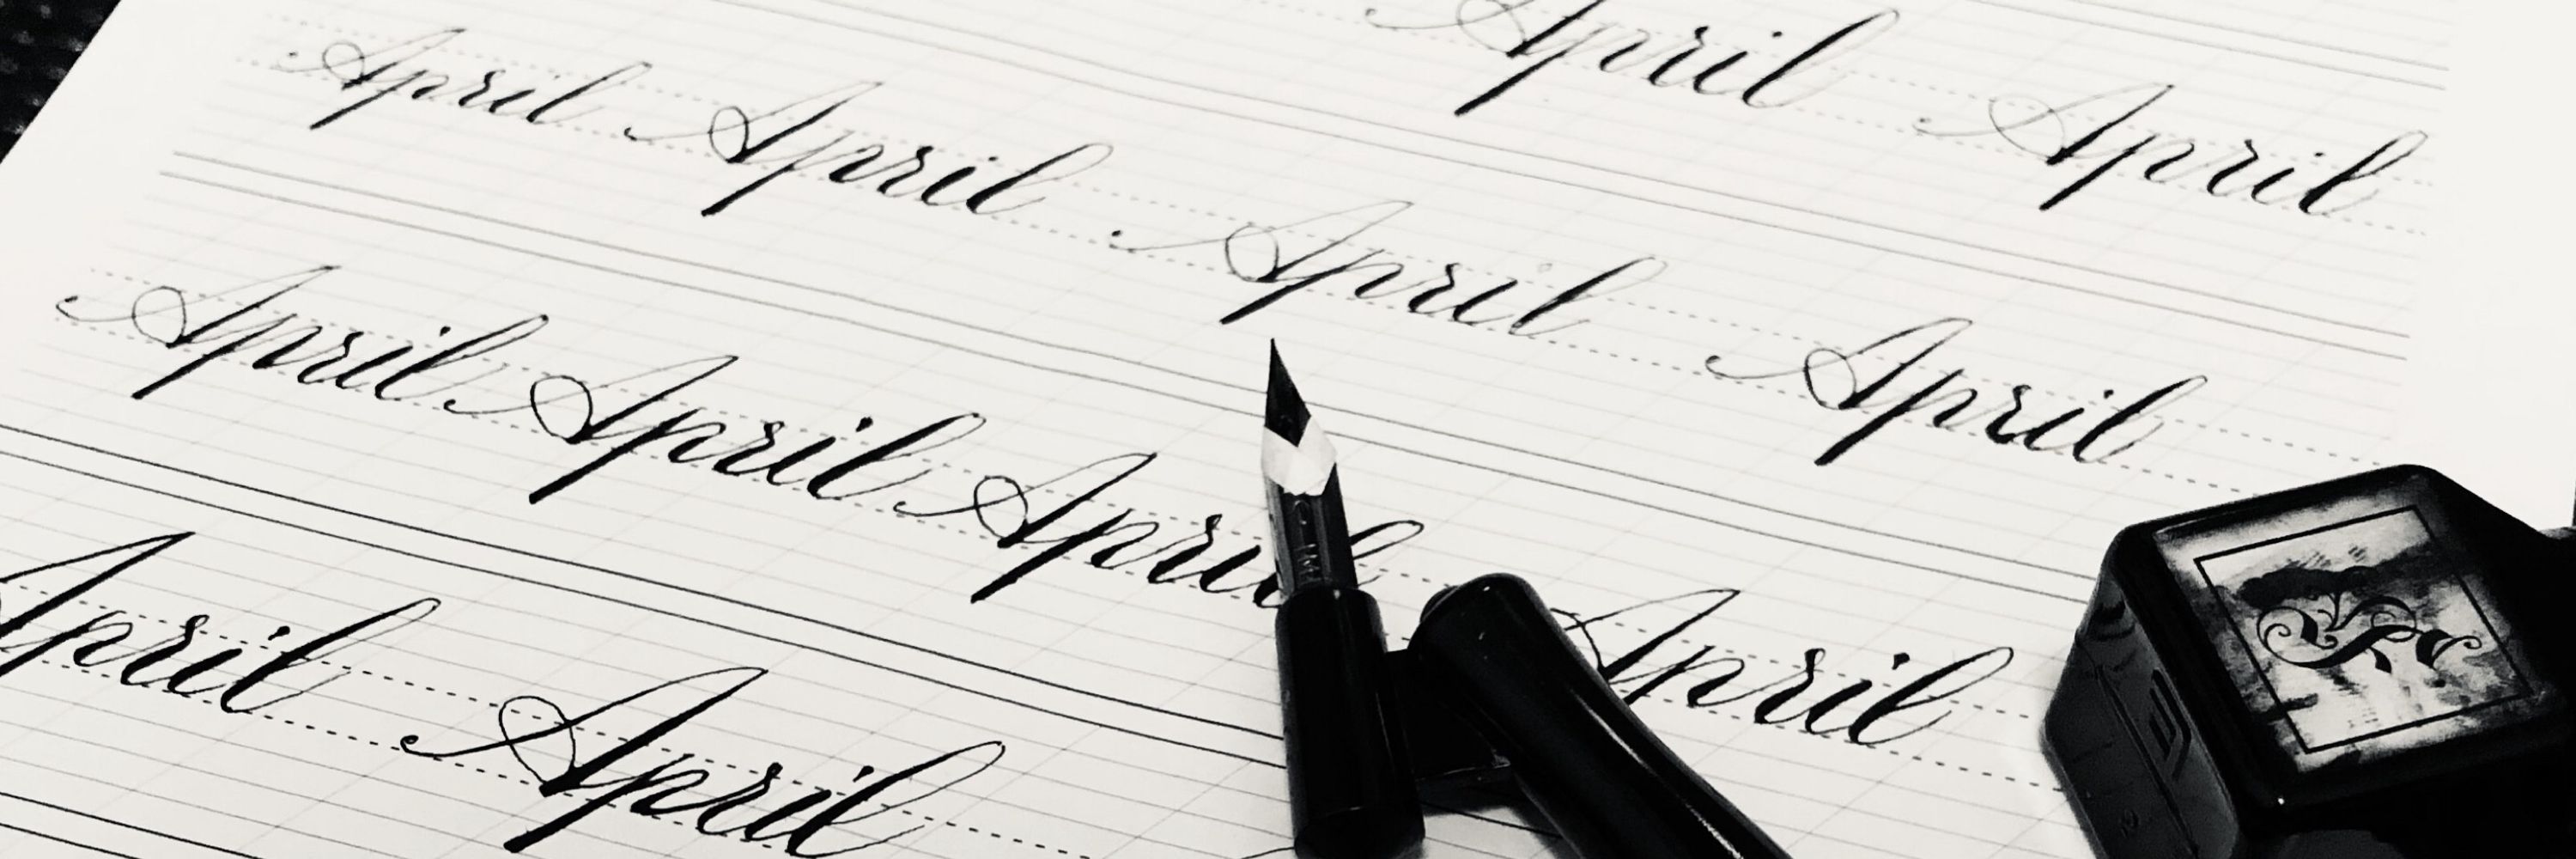 April April
April April April April
April April April April
April April